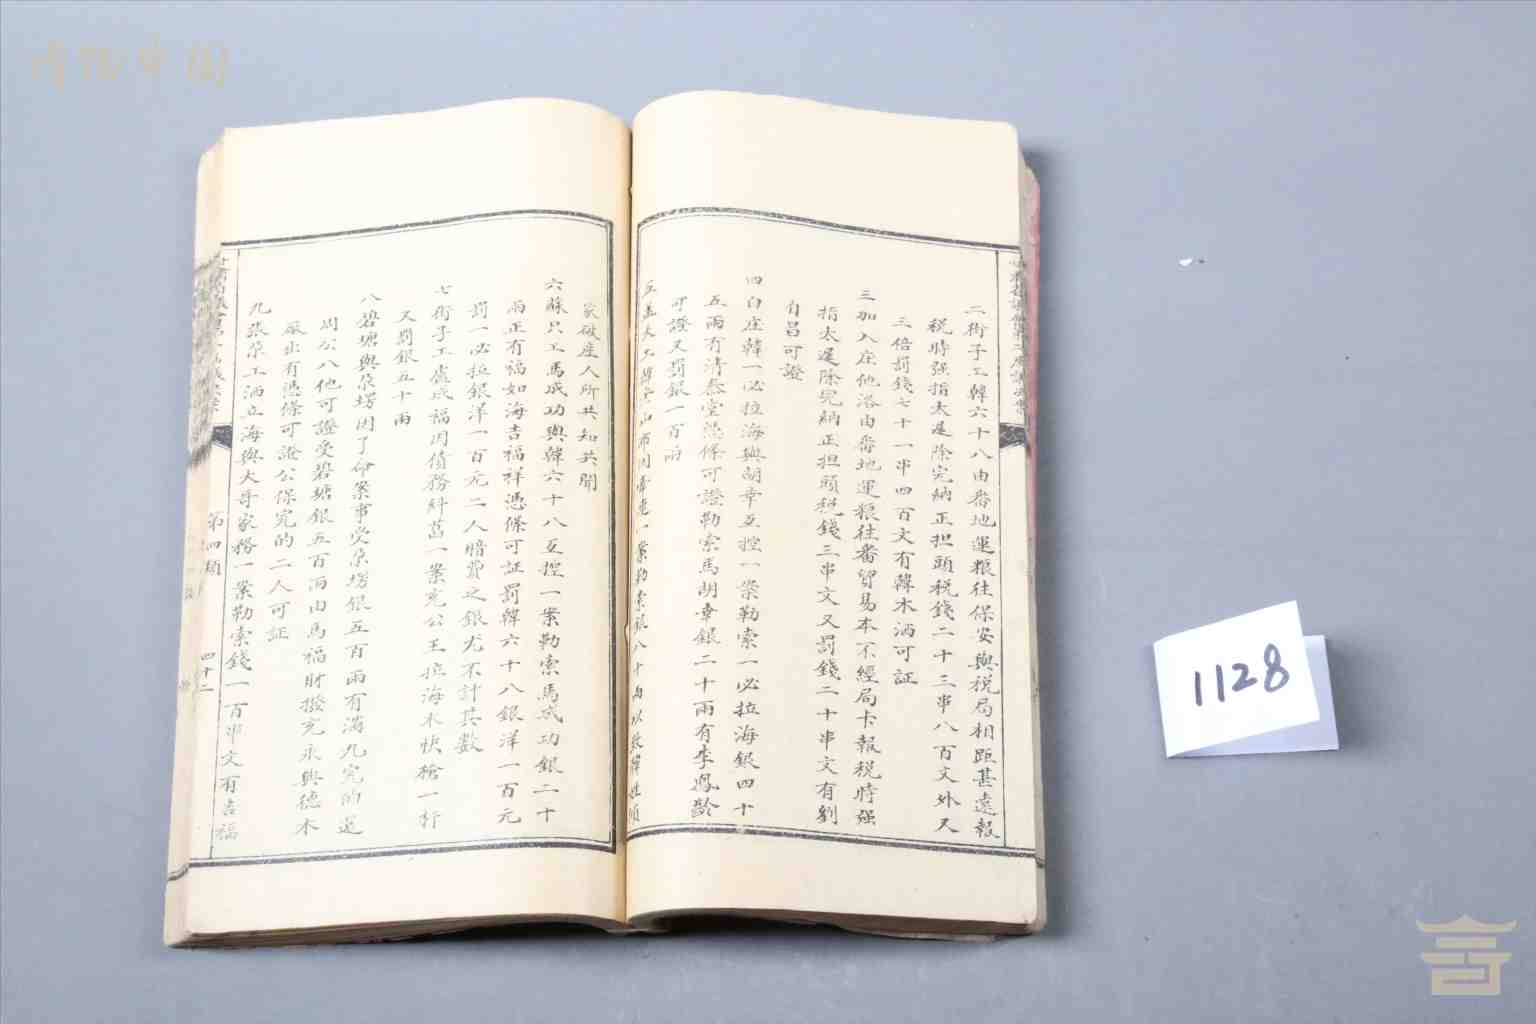 二街子工韓六十八由番地運粮往保安與税局相距甚遠報
税時强指太遲除完納正担頭税錢二十三串八百文外又
三倍罰錢七十一串四百文有韓木洒可証
三加入庄他洛由番地運粮往番貿易本不經局卡報税時强
指太遲除完納正担頭税錢三串文又罰錢二十串文有劉
自昌可證
四白庄韓一必拉海與胡幸互控一案勒索一必拉海銀四十
五兩有清泰堂憑條可證勒索馬胡幸銀二十兩有李鳳齡
可證又罰銀一百兩
五孟夫工韓 山市因牽連一案勒索銀八十両以致韓姓傾
家破産人所共知共聞
六蘇只工馬成功與韓六十八互控一案勒索馬成功銀二十
兩正有福如海吉福祥憑條可証罰韓六十八銀洋一百元
罰一必拉銀洋一百元二人暗費之銀尤不計其數
七街子工處成福因債務糾葛一案充公王拉海木快槍一桿
又罰銀五十兩
八碧塘與朶塄因了命案事受朶塄銀五百兩有满九完的道
周尕八他可證受碧塘銀五百両由馬福財撥充永興德木
厰出有憑條可證公保完的二人可証
九張朶工洒立海與大哥家務一案勒索錢一百串文有吉福
第四類
四十二
1128